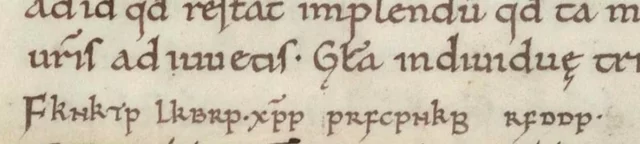 ad id qd̄ reſtat implendū qd̄ ta m
ur̄is adiuuetis· Gła indiuiduę tri
Fknktp lkbrp· xp̄p prfcpnkb rfddp·